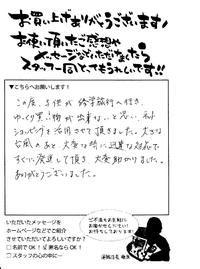 お買い上げありがとうございます!
お使い頂いたご感想や
メッセージなどいただけましたら
スタッフ一同とてもうれしいです!!
▼こちらへお願いします!
この度、子供が修学旅行へ行き、
ゆっくり買い物が出来ないと思い、ネット
ショッピングを活用させて頂きました。大きな
台風のあと、大変な時に迅速な対応で
すぐに発送して頂き、大変助かりました。
ありがとうございました。
いただいたメッセージを
ホームページなどでご紹介
させていただいてよろしいですか?
□名前でOK! 匿名ならOK!
□スタッフの心の中に…